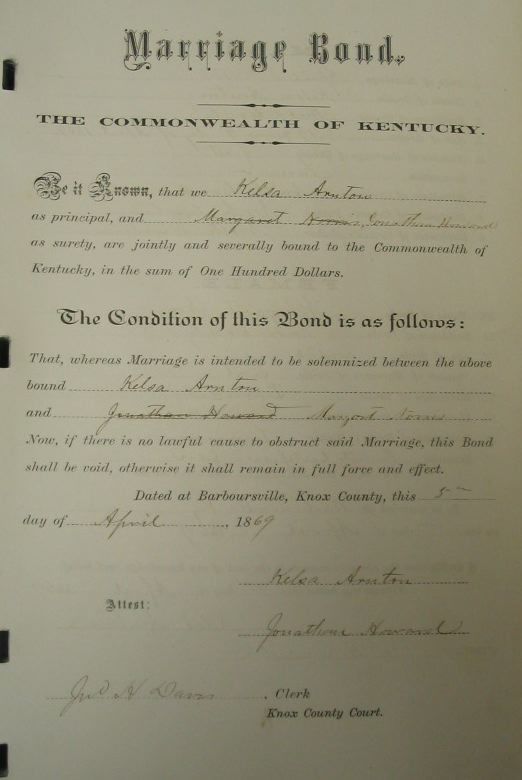 Marriage Bond.
THE COMMONWEALTH OF KENTUCKY.
Be it Known, that we Kelsa Arnton
as principal, and Margaret Norris, Jonathan Howard
as surety, are jointly and severally bound to the Commonwealth of
Kentucky, in the sum of One Hundred Dollars.
The Condition of this Bond is as follows:
That, whereas Marriage is intended to be solemnized between the above
bound Kelsa Arnton
and Jonathan Howard Margart Norris
Now, if there is no lawful cause to obstruct said Marriage, this Bond
shall be void, otherwise it shall remain in full force and effect.
Dated at Barboursville, Knox County, this 5
day of April, 1869
Kelsa Arnton
Attest:
Jonathan Howard
H Davis, Clerk
Knox County Court.